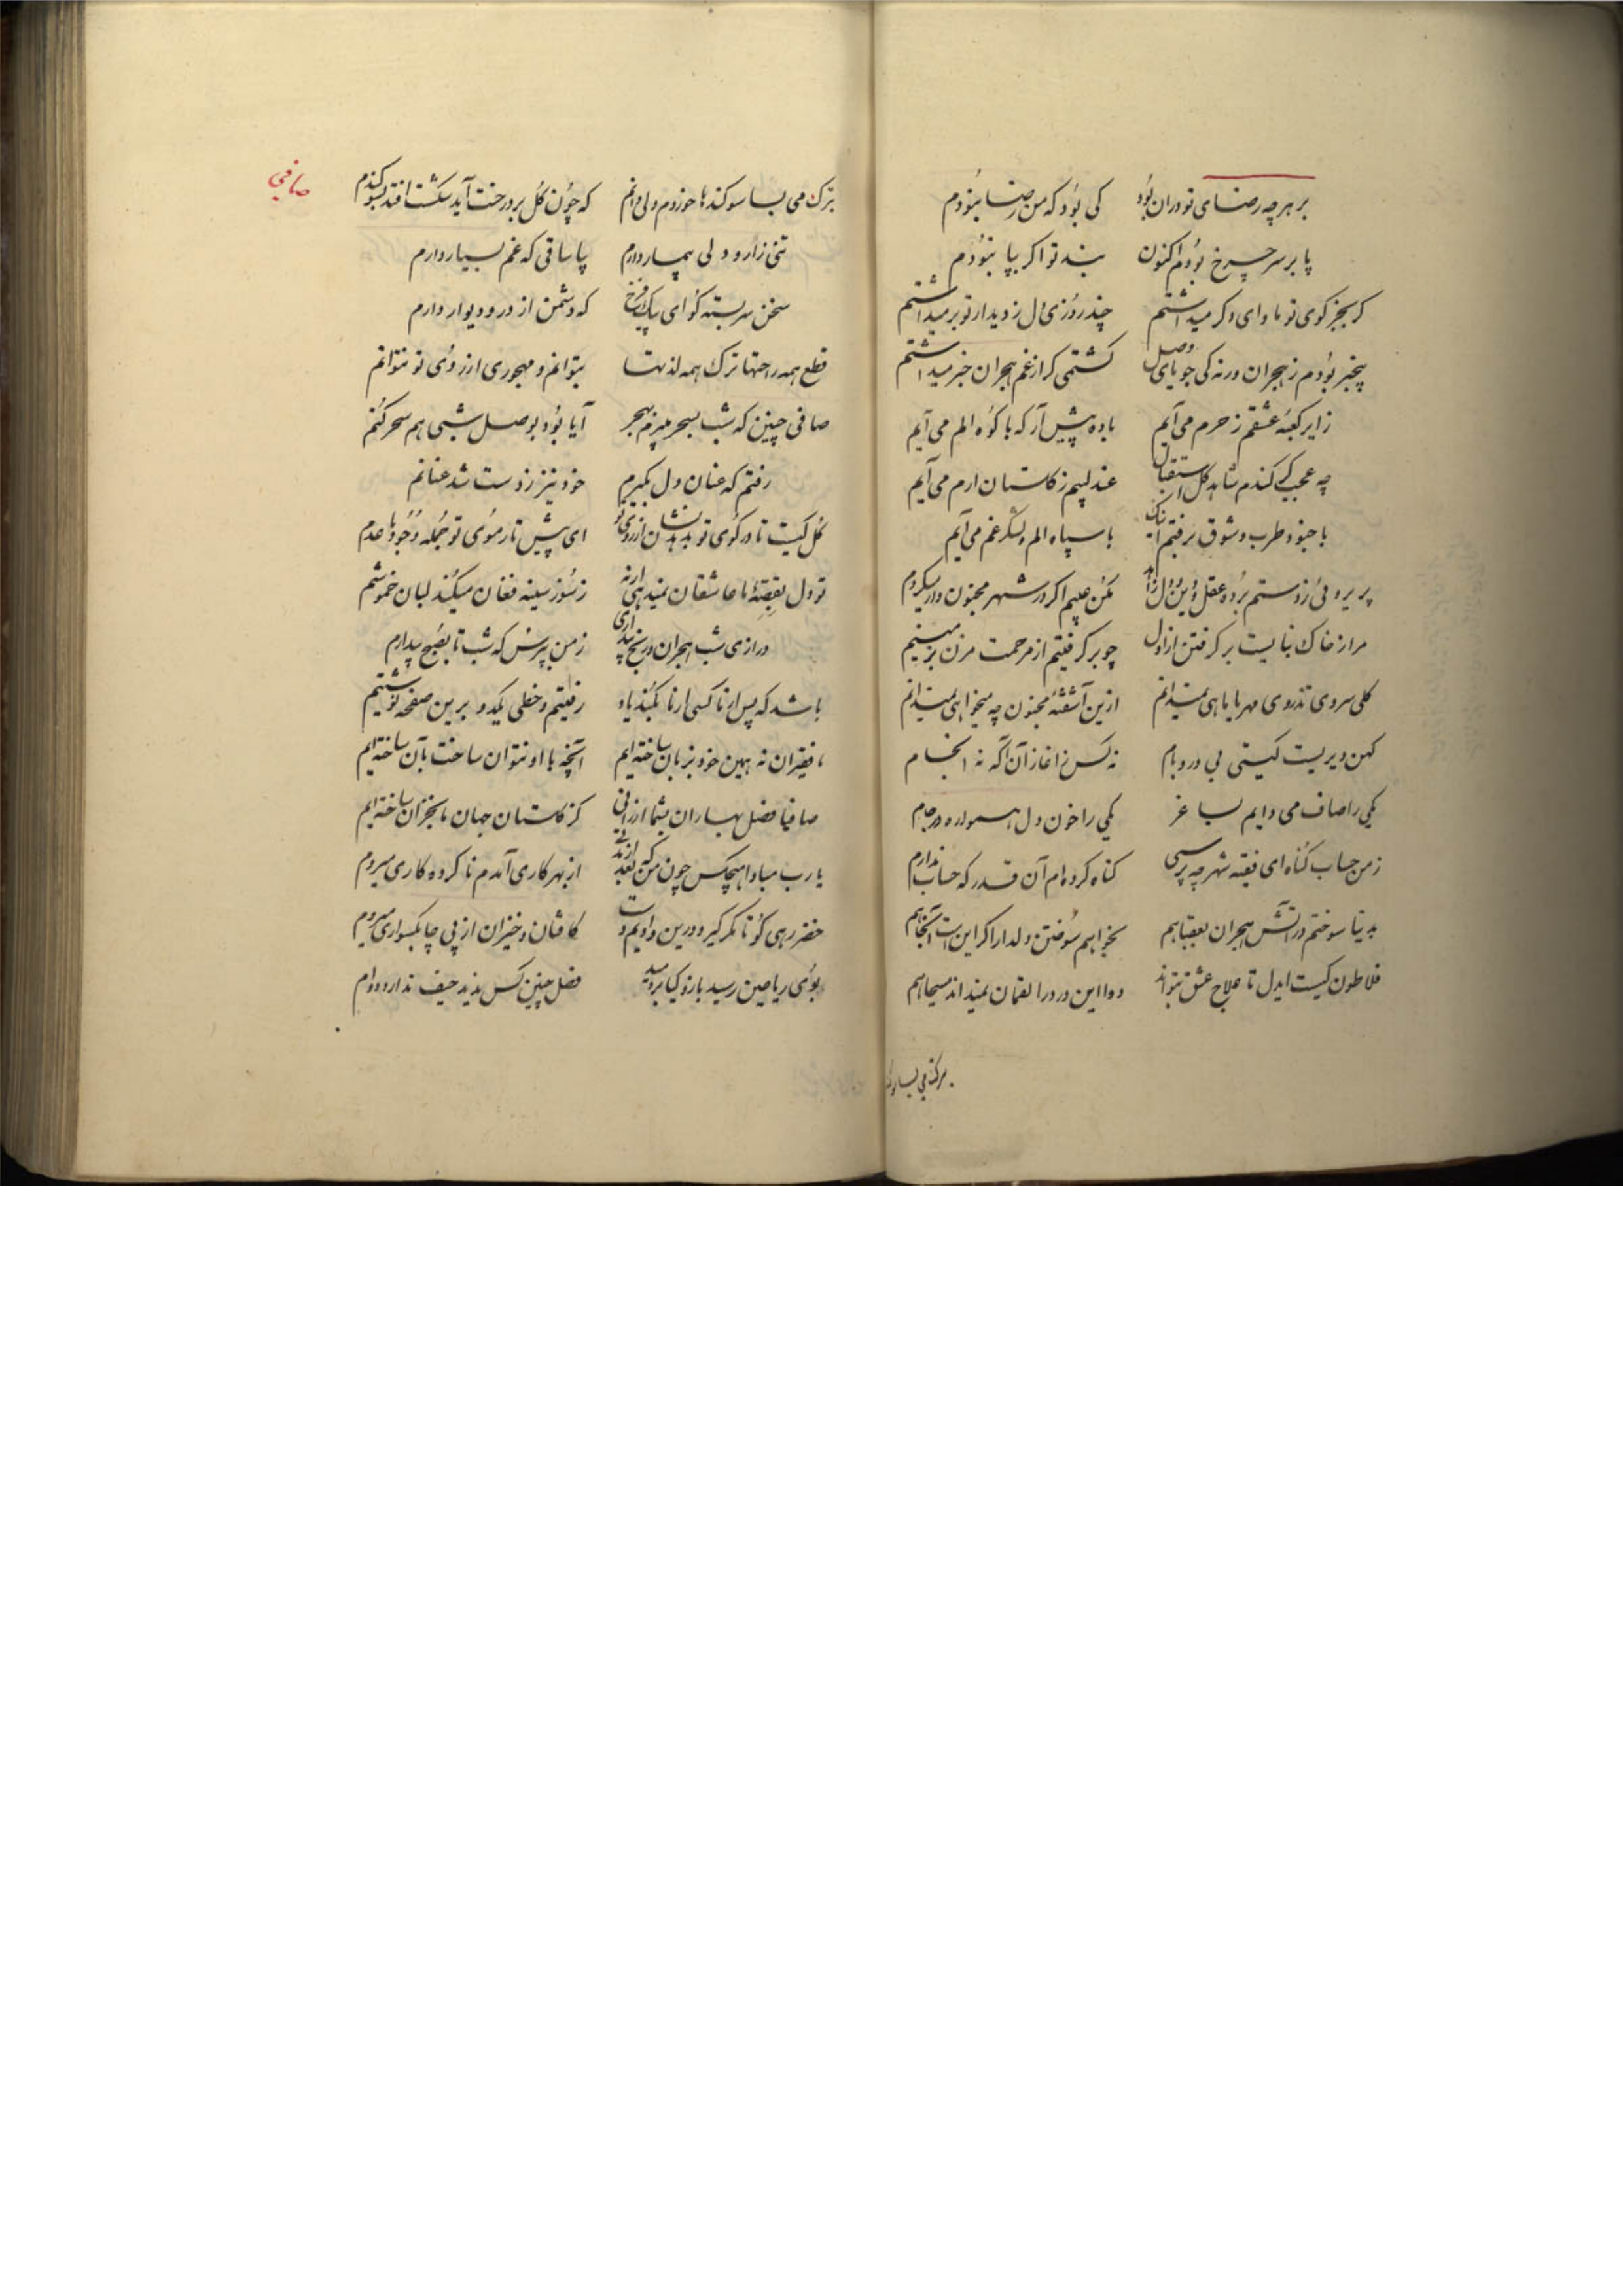 بر هرچه رضای تو دران بود کی بود که من رضا نبودم
پا بر سر چرخ بودم اکنون بند تو اگر بپا نبودم
گر بجز کوی تو ماوای دگر میداشتم چند روزی دل ز دیدار تو برمیداشتم
بیخبر بودم ز هجران ورنه کی جویای وصل گشتمی گر از غم هجران خبر میداشتم
زایر کعبه عشقم ز حرم می آیم باده پیش آر که با کوه الم می آیم
چه عجب گر کندم شاهد گل استقبال عندلیبم ز گلستان ارم می آیم
با جنود طرب و شوق برفتم اینک با سپاه الم و لشکر غم می آیم
پریروئی ز دستم برده عقل و دین و دل زاهد مکن عیبم اگر در شهر مجنون وار میگردم
مرا از خاک بنایست برگرفتن از اول چو برگرفتیم از مرحمت مزن بزمینم
گلی سروی تذروی مهر یا ماهی نمیدانم ازین آشفته مجنون چه میخواهی نمیدانم
کهن دیریست گیتی بی در و بام نه کس ز اغاز آن آگه نه انجام
یکی را صاف می دایم بساغر یکی را خون دل همواره در جام
ز من حساب گناه ای فقیه شهر چه پرسی گناه کرده ام آن قدر که حساب ندارم
بدنیا سوختم در آتش هجران بعقبا هم بخواهم سوختن دلدار اگر این است آنجا هم
فلاطون کیست ایدل تا علاج عشق بتواند دوا این درد را لقمان نمیداند مسیحا هم
صافی
بترک می بسا سوکندها خوردم ولی دانم که چون گل بر درخت آید شکست افتد بسوکندم
تنی زار و دلی بیمار دارم بیا ساقی که غم بسیار دارم
سخن سربسته گو ای پیک فرخ که دشمن از در و دیوار دارم
قطع همه راحتها ترک همه لذتها بتوانم و مهجوری از روی تو نتوانم
صافی چنین که شب بسحر میبرم بهجر آیا بود بوصل شبی هم سحر کنم
رفتم که عنان دل بگیرم خود نیز ز دست شد عنانم
گل کیست تا در کوی تو بدهد نشان از روی تو ای پیش تار موی تو جمله وجودها عدم
تو دل بقصه ما عاشقان نمیدهی ارنه ز سوز سینه فغان میکند لبان خموشم
درازی شب هجران و رنج بیداری ز من بپرس که شب تا بصبح بیدارم
باشد که پس از ما کسی از ما بکند یاد رفتیم و خطی یکدو برین صفحه نوشتیم
ما فقیران نه همین خود بزبان ساخته ایم آنچه با او نتوان ساخت بآن ساخته ایم
صافیا فصل بهاران بشما ارزانی کز گلستان جهان ما بخزان ساخته ایم
یا رب مبادا هیچکس چون من که بعد از زندگی از بهر کاری آمدم ناکرده کاری میروم
خضر رهی کو تا مگر گیرد درین وادیم دست کافتان و خیزان از پی چابکسواری میروم
بوی ریاحین رسید بازو گیا بردمید فصل چنین کس ندید حیف ندارد دوام